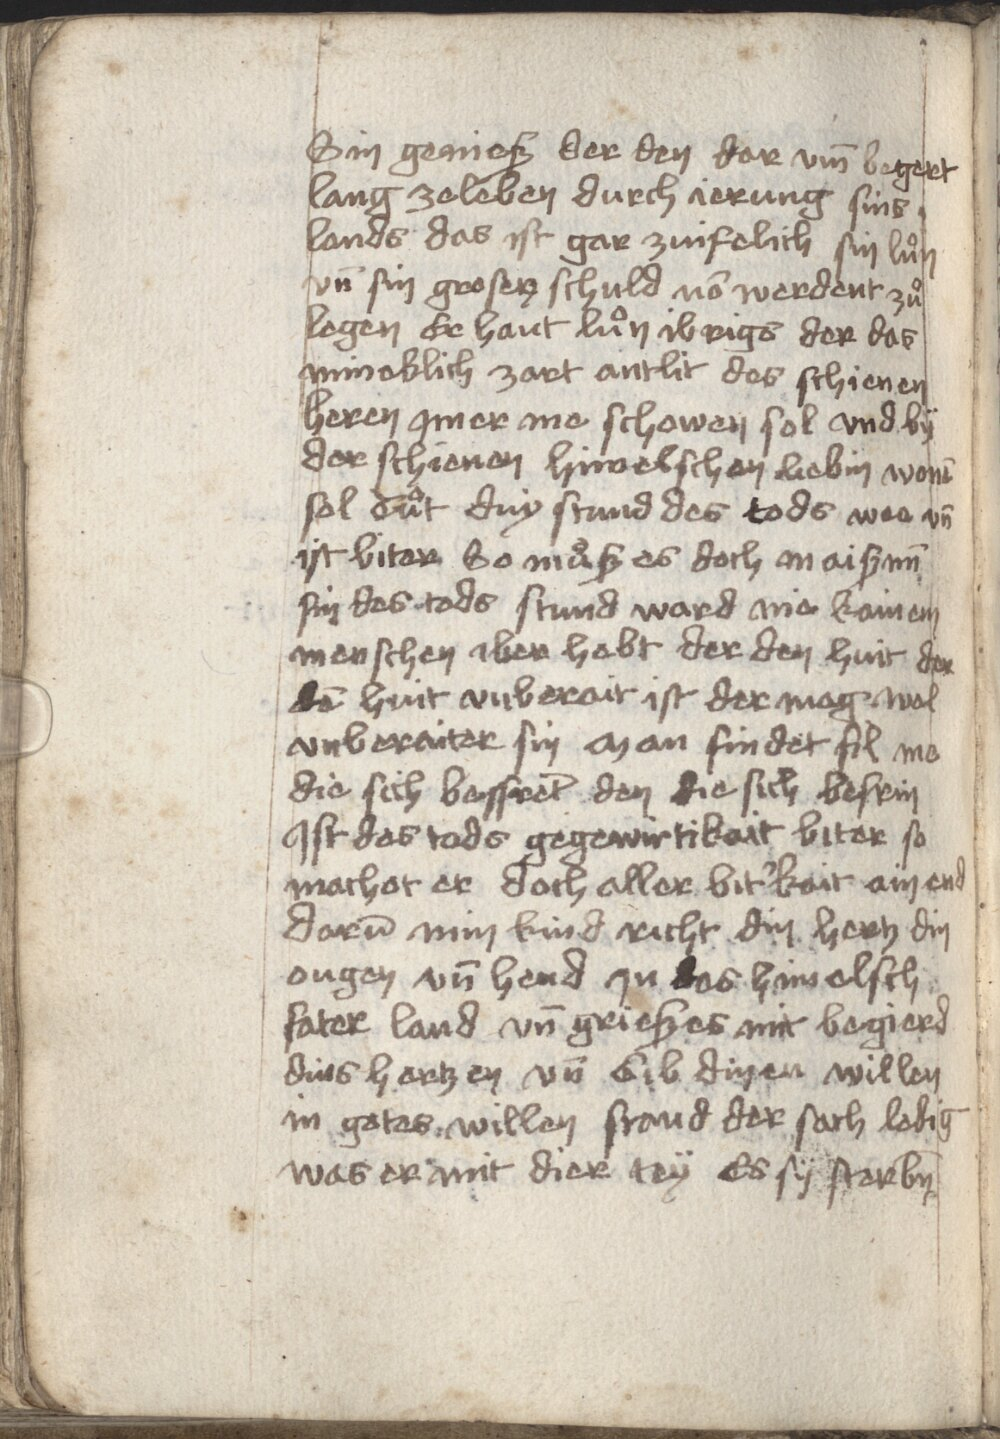 Sin genieß der den dar vm̄ begert
lang zeleben durch ierung sins
lands das ist gar zuifelich sin luͦn
vn̄ sin groser schuld no werdent zuͦ
legen Er haut luͦn ibrigs der das
mineklich zart antlit des schienen
heren jmer me schowen sol vnd bÿ
der schienen himelschen liebin wonē
sol Tuͦt duÿ stund des tods wee vn̄
ist biter So muͦß es doch anaißmī
sin des tods stund ward nie kainem
menschen iber hebt der den huit der
dē huit vnberait ist der mag wol
vnberaiter sin Man findet fil me
die sich bessret den die sich besrin
Ist des tods gegewirtikait biter so
machot er doch aller bit'kait ain end
Darū min kind richt din hertz din
ougen vn̄ hend in das himelsch
fater land vn̄ grieß es mit begierd
dins hertzen vn̄ Gib dinen willen
in gotes willen stand der sach ledig
was er mit dier tey Es sÿ sterbn̄